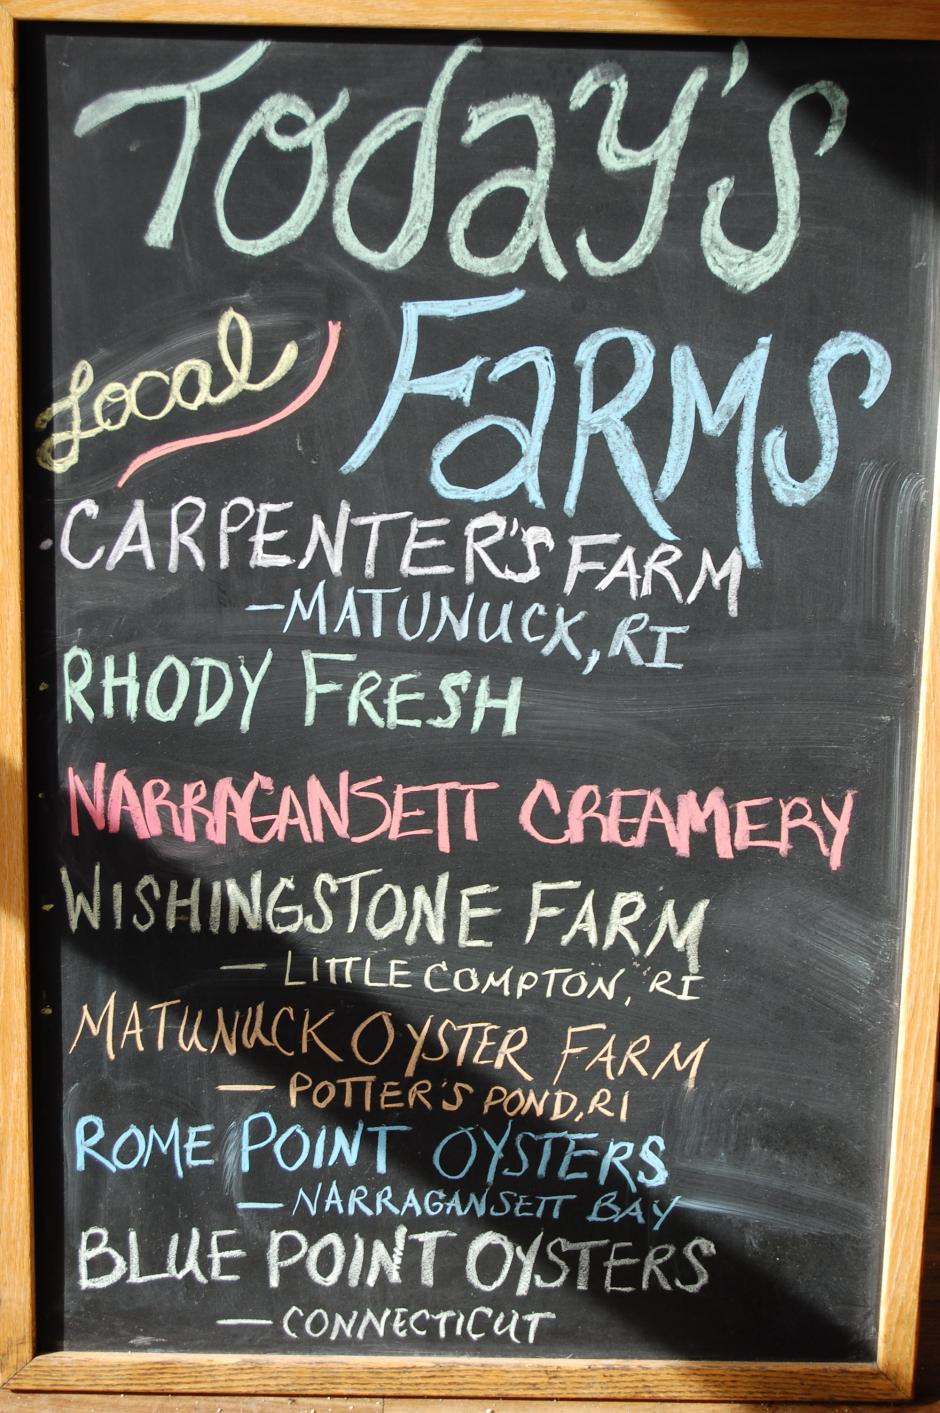 Today's
Local Farms
CARPENTER'S FARM
- MATUNUCK, RI
RHODY FRESH
NARRAGANSETT CREAMERY
WISHINGSTONE FARM
- LITTLE COMPTON, RI
MATUNUCK OYSTER FARM
- POTTER'S POND, RI
ROME POINT OYSTERS
- NARRAGANSETT BAY
BLUE POINT OYSTERS
- CONNECTICUT